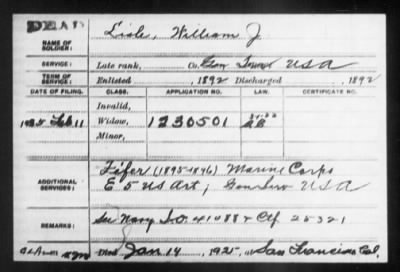 DEAD
NAME OF SOLDIER: Lisle, William J.
SERVICE: Late rank, Co. Gen Serv USA
TERM OF SERVICE: Enlisted , 1892 Discharged , 1892
DATE OF FILING. CLASS. APPLICATION NO. LAW. CERTIFICATE NO.
Invalid,
1925 Feb 11 Widow, 1230501
Minor,
ADDITIONAL SERVICES: Fifer (1895-1896) Marine Corps
E. 5 US Art; Gen Serv USA
REMARKS: See Navy S.O. 41088 & Ctf 25321
Died Jan 14, 1925, at San Francisco Cal.